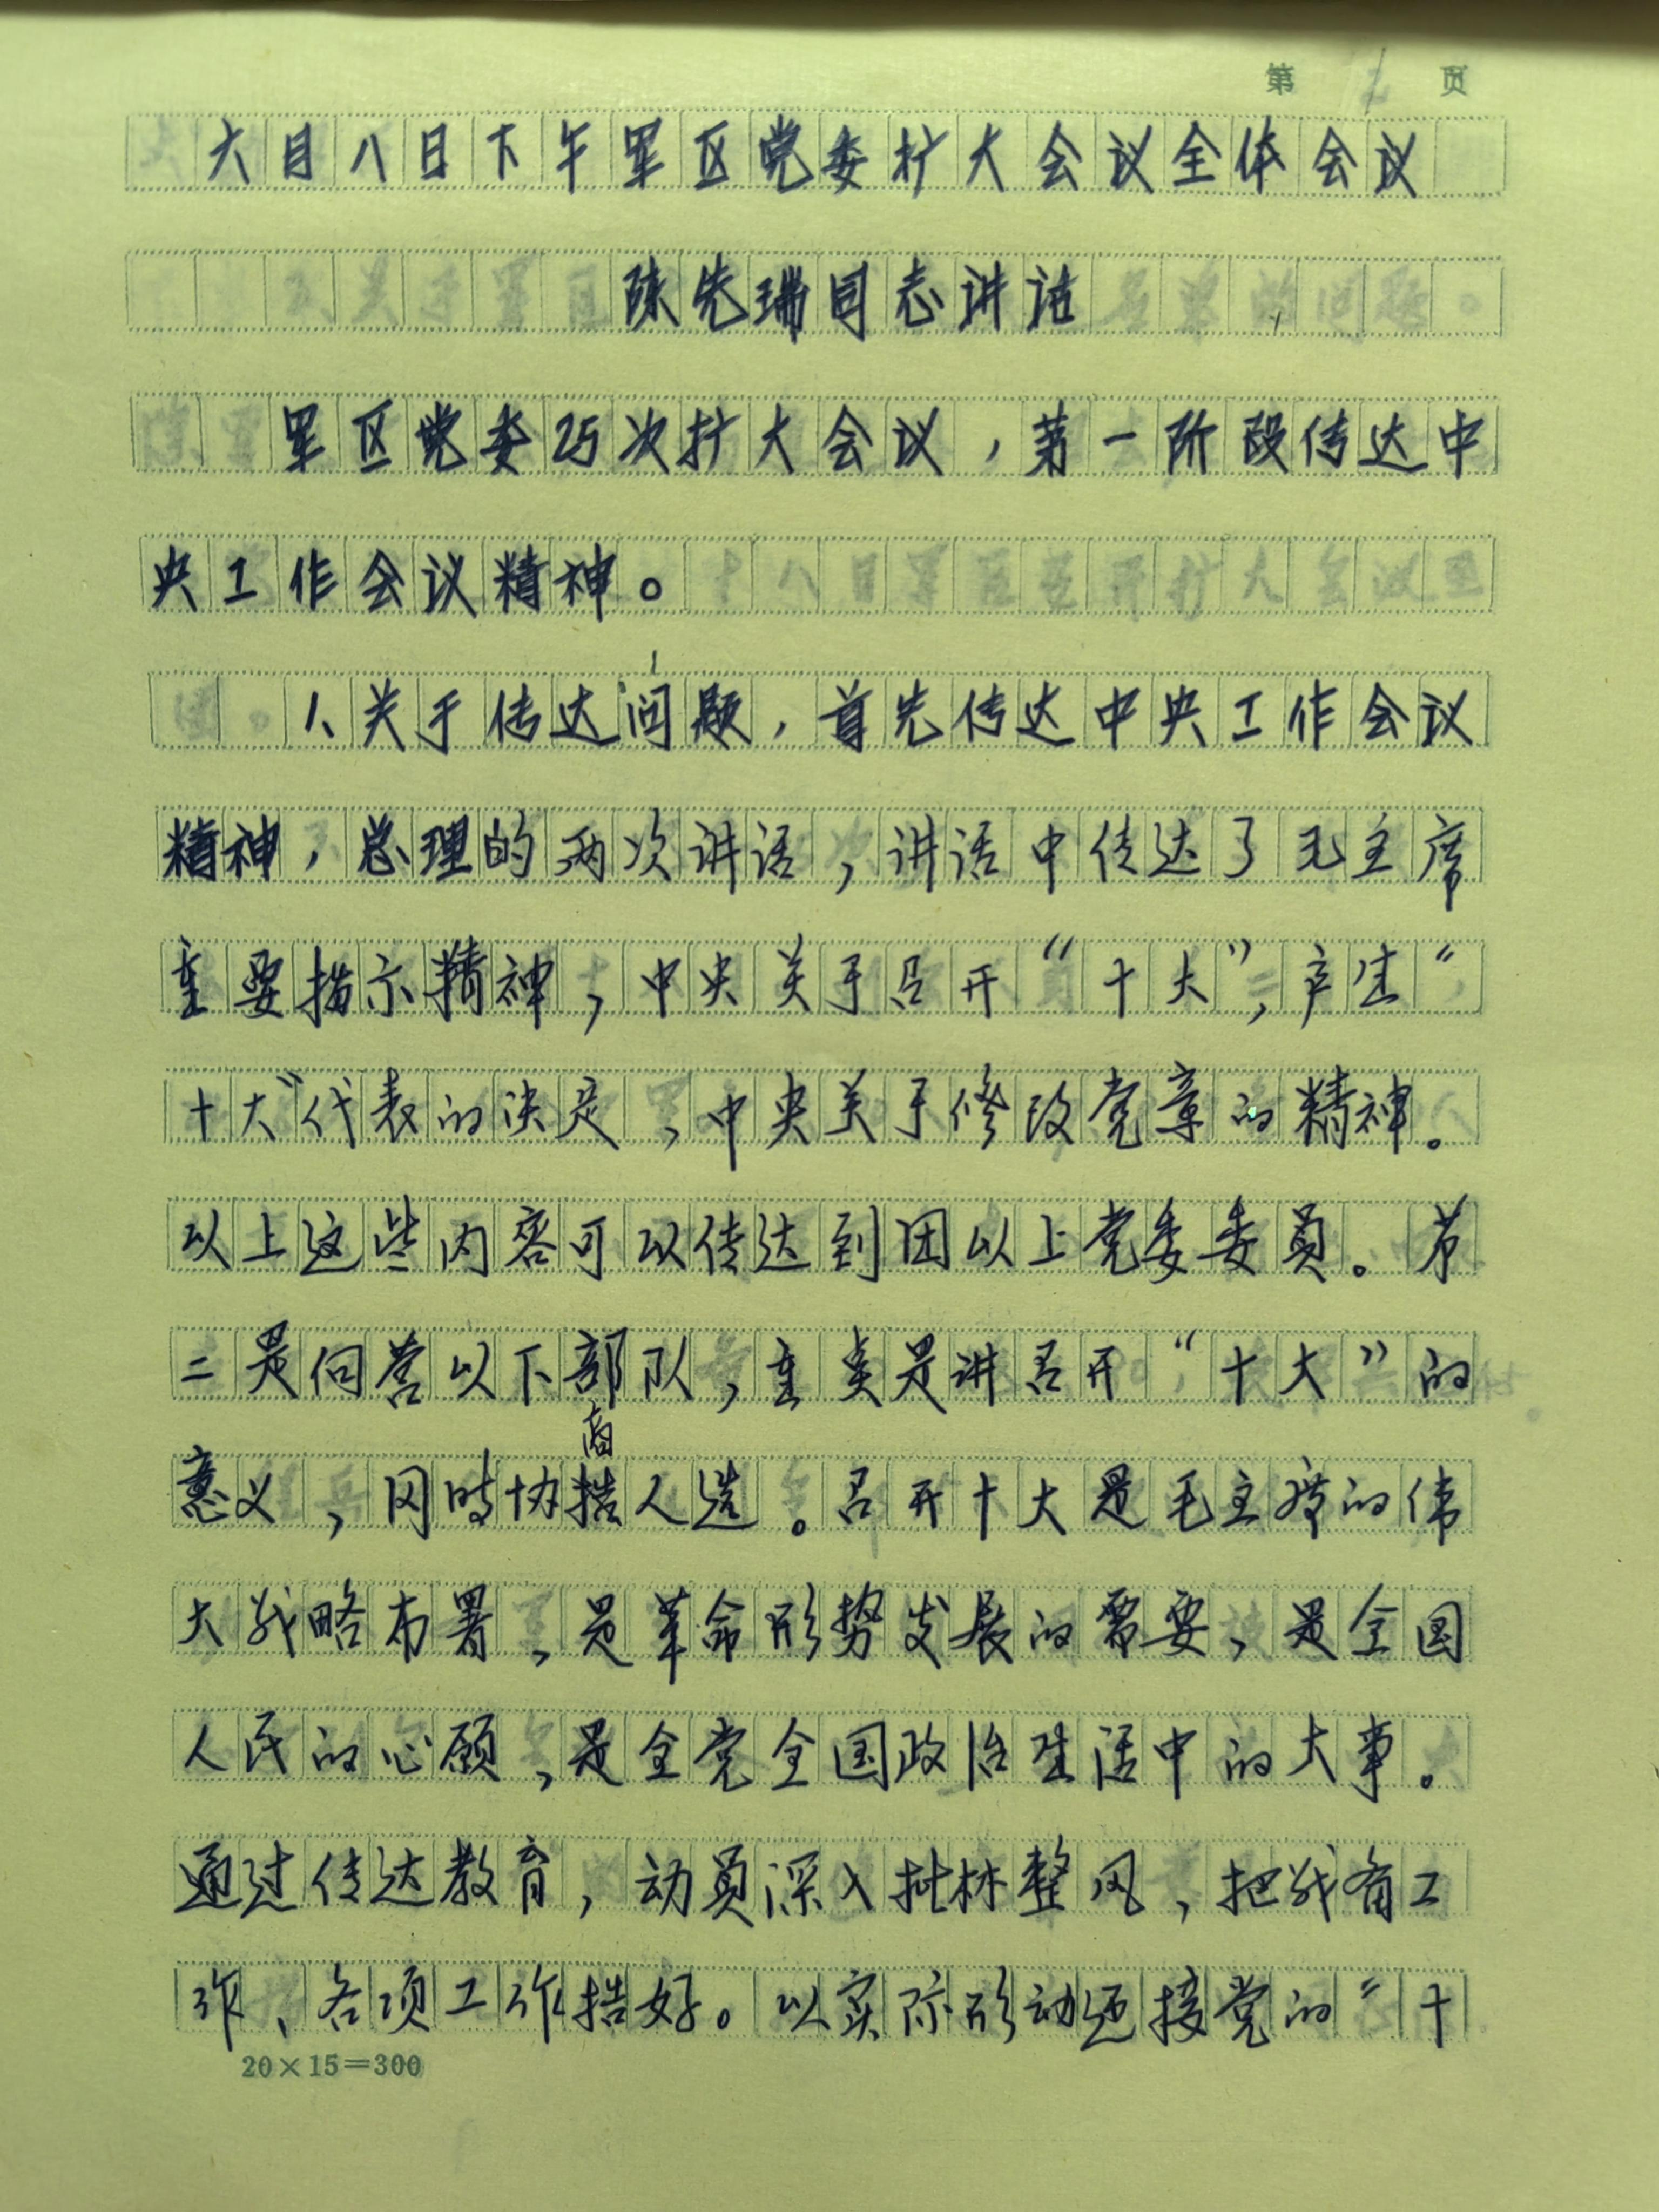 第 1 页
六月八日下午军区党委扩大会议全体会议
陈先瑞同志讲话
军区党委25次扩大会议，第一阶段传达中
央工作会议精神。
1、关于传达问题，首先传达中央工作会议
精神，总理的两次讲话，讲话中传达了毛主席
重要指示精神，中央关于召开“十大”，产生“
十大”代表的决定，中央关于修改党章的精神。
以上这些内容可以传达到团以上党委委员。第
二是向营以下部队，重点是讲召开“十大”的
商
意义，同时协搞人选。召开十大是毛主席的伟
大战略布署，是革命形势发展的需要，是全国
人民的心愿，是全党全国政治生活中的大事。
通过传达教育，动员深入批林整风，把战备工
作、各项工作搞好。以实际形动迎接党的“十
20×15=300